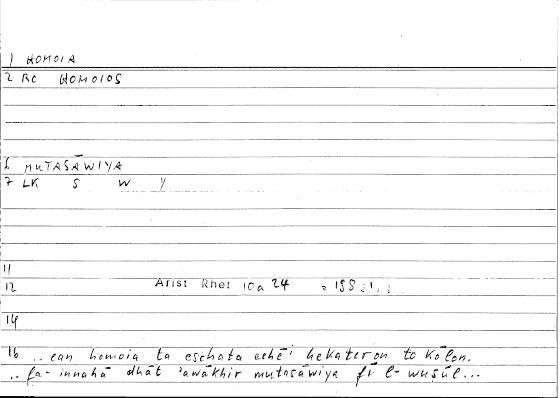 1 HOMOIA
2 RC HOMOIOS
6 MUTASĀWIYA
7 LK S W Y
11
12 Arist Rhet 10a 24
14
16 .. ean homoia ta eschata echēi hekateron to kōlon.
.. fa-innahā dhāt 'awākhir mutasāwiya fī l-wuṣūl...